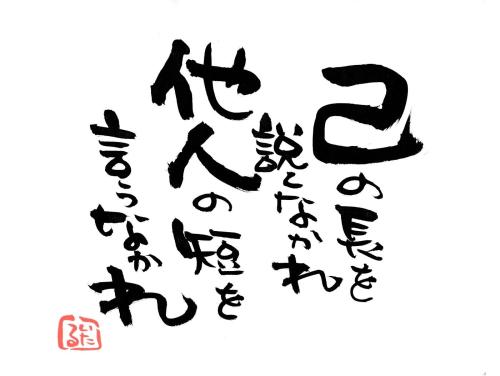 己の長を
説くなかれ
他人の短を
言うなかれ